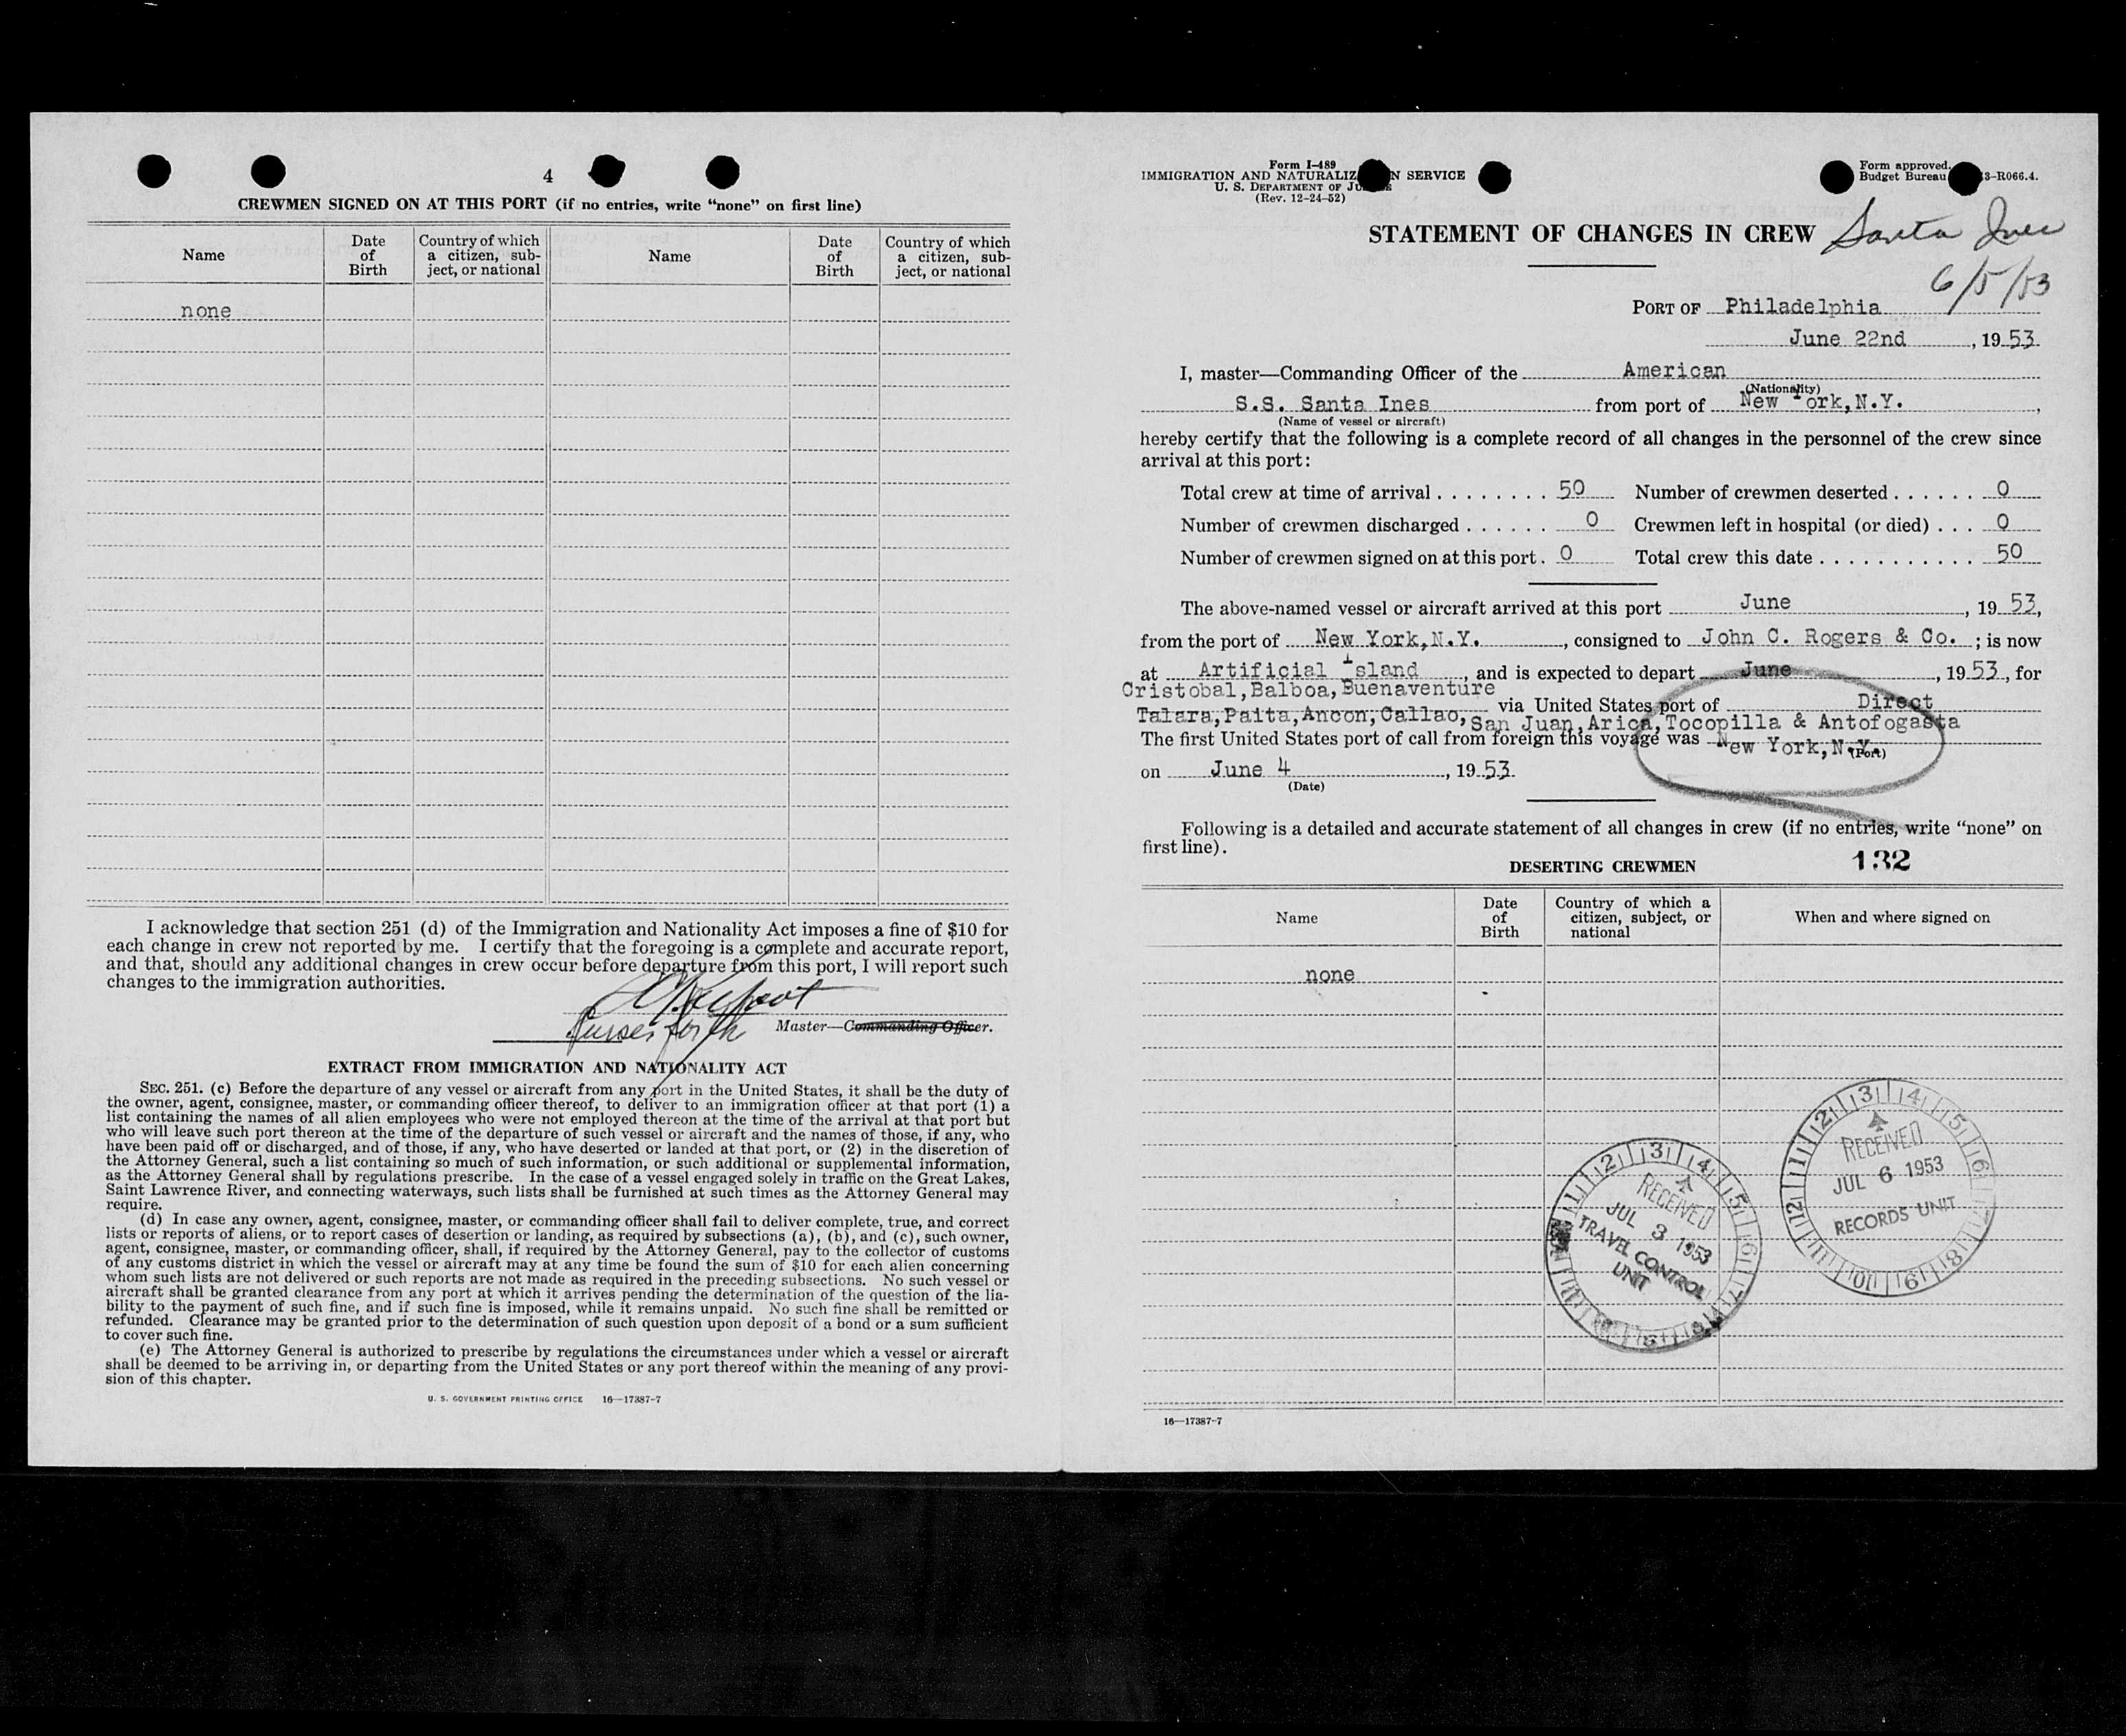 4
CREWMEN SIGNED ON AT THIS PORT (if no entries, write "none" on first line)
Name Date of Birth Country of which a citizen, subject, or national Name Date of Birth Country of which a citizen, subject, or national
none
I acknowledge that section 251 (d) of the Immigration and Nationality Act imposes a fine of $10 for
each change in crew not reported by me. I certify that the foregoing is a complete and accurate report,
and that, should any additional changes in crew occur before departure from this port, I will report such
changes to the immigration authorities.
Purser for the Master—Commanding Officer.
EXTRACT FROM IMMIGRATION AND NATIONALITY ACT
SEC. 251. (c) Before the departure of any vessel or aircraft from any port in the United States, it shall be the duty of
the owner, agent, consignee, master, or commanding officer thereof, to deliver to an immigration officer at that port (1) a
list containing the names of all alien employees who were not employed thereon at the time of the arrival at that port but
who will leave such port thereon at the time of the departure of such vessel or aircraft and the names of those, if any, who
have been paid off or discharged, and of those, if any, who have deserted or landed at that port, or (2) in the discretion of
the Attorney General, such a list containing so much of such information, or such additional or supplemental information,
as the Attorney General shall by regulations prescribe. In the case of a vessel engaged solely in traffic on the Great Lakes,
Saint Lawrence River, and connecting waterways, such lists shall be furnished at such times as the Attorney General may
require.
(d) In case any owner, agent, consignee, master, or commanding officer shall fail to deliver complete, true, and correct
lists or reports of aliens, or to report cases of desertion or landing, as required by subsections (a), (b), and (c), such owner,
agent, consignee, master, or commanding officer, shall, if required by the Attorney General, pay to the collector of customs
of any customs district in which the vessel or aircraft may at any time be found the sum of $10 for each alien concerning
whom such lists are not delivered or such reports are not made as required in the preceding subsections. No such vessel or
aircraft shall be granted clearance from any port at which it arrives pending the determination of the question of the lia-
bility to the payment of such fine, and if such fine is imposed, while it remains unpaid. No such fine shall be remitted or
refunded. Clearance may be granted prior to the determination of such question upon deposit of a bond or a sum sufficient
to cover such fine.
(e) The Attorney General is authorized to prescribe by regulations the circumstances under which a vessel or aircraft
shall be deemed to be arriving in, or departing from the United States or any port thereof within the meaning of any provi-
sion of this chapter.
U. S. GOVERNMENT PRINTING OFFICE 16—17387-7
Form I-489
IMMIGRATION AND NATURALIZ N SERVICE
U. S. DEPARTMENT OF JU E
(Rev. 12-24-52)
Form approved.
Budget Bureau 3-R066.4.
STATEMENT OF CHANGES IN CREW Santa Ines
6/5/53
PORT OF Philadelphia
June 22nd, 1953
I, master—Commanding Officer of the American
(Nationality)
S.S. Santa Ines from port of New York,N.Y.,
(Name of vessel or aircraft)
hereby certify that the following is a complete record of all changes in the personnel of the crew since
arrival at this port:
Total crew at time of arrival . . . . . . . . 50 Number of crewmen deserted . . . . . . 0
Number of crewmen discharged . . . . . . 0 Crewmen left in hospital (or died) . . . 0
Number of crewmen signed on at this port . 0 Total crew this date . . . . . . . . . . . 50
The above-named vessel or aircraft arrived at this port June, 1953,
from the port of New York,N.Y., consigned to John C. Rogers & Co. ; is now
at Artificial Island, and is expected to depart June, 1953, for
Cristobal,Balboa,Buenaventure
via United States port of Direct
Talara,Paita,Ancon,Callao,San Juan,Arica,Tocopilla & Antofogasta
The first United States port of call from foreign this voyage was New York,N.Y.
(Port)
on June 4, 1953.
(Date)
Following is a detailed and accurate statement of all changes in crew (if no entries, write "none" on
first line).
DESERTING CREWMEN 132
Name Date of Birth Country of which a citizen, subject, or national When and where signed on
none
RECEIVED
JUL 3 1953
TRAVEL CONTROL
UNIT
RECEIVED
JUL 6 1953
RECORDS UNIT
16—17387-7